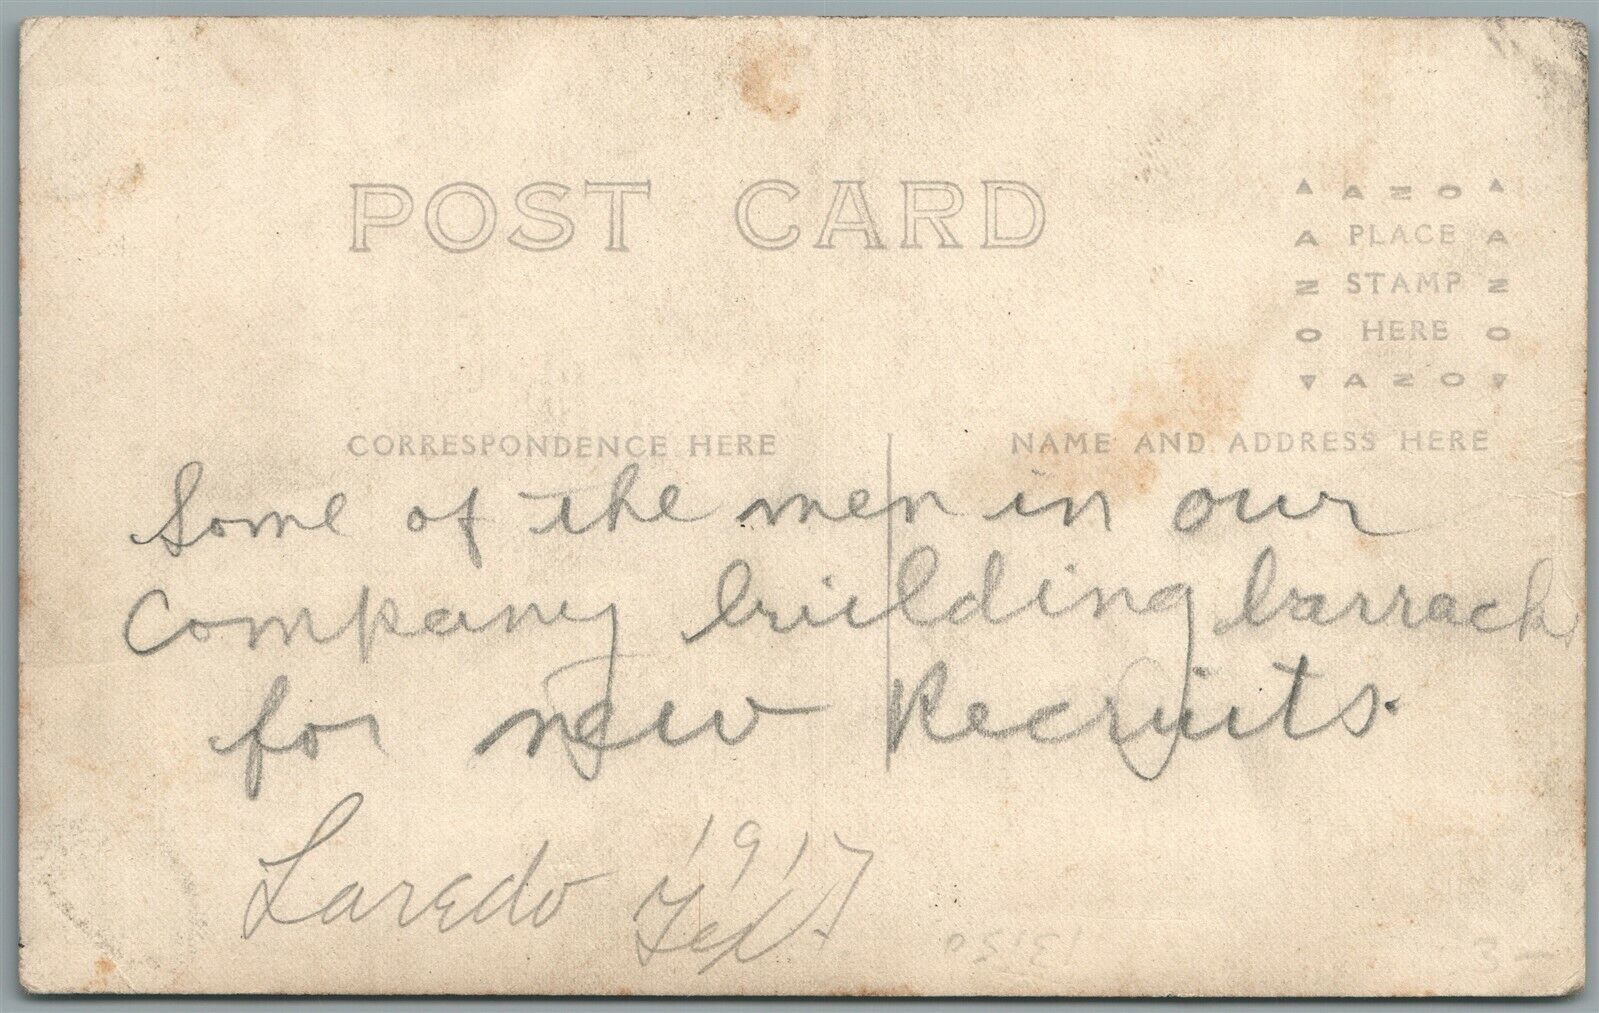 POST CARD
AZO
A PLACE A
N STAMP N
O HERE O
AZO
CORRESPONDENCE HERE
NAME AND ADDRESS HERE
Some of the men in our
Company building barracks
for new Recruits.
1917
Laredo Tex.
3 –